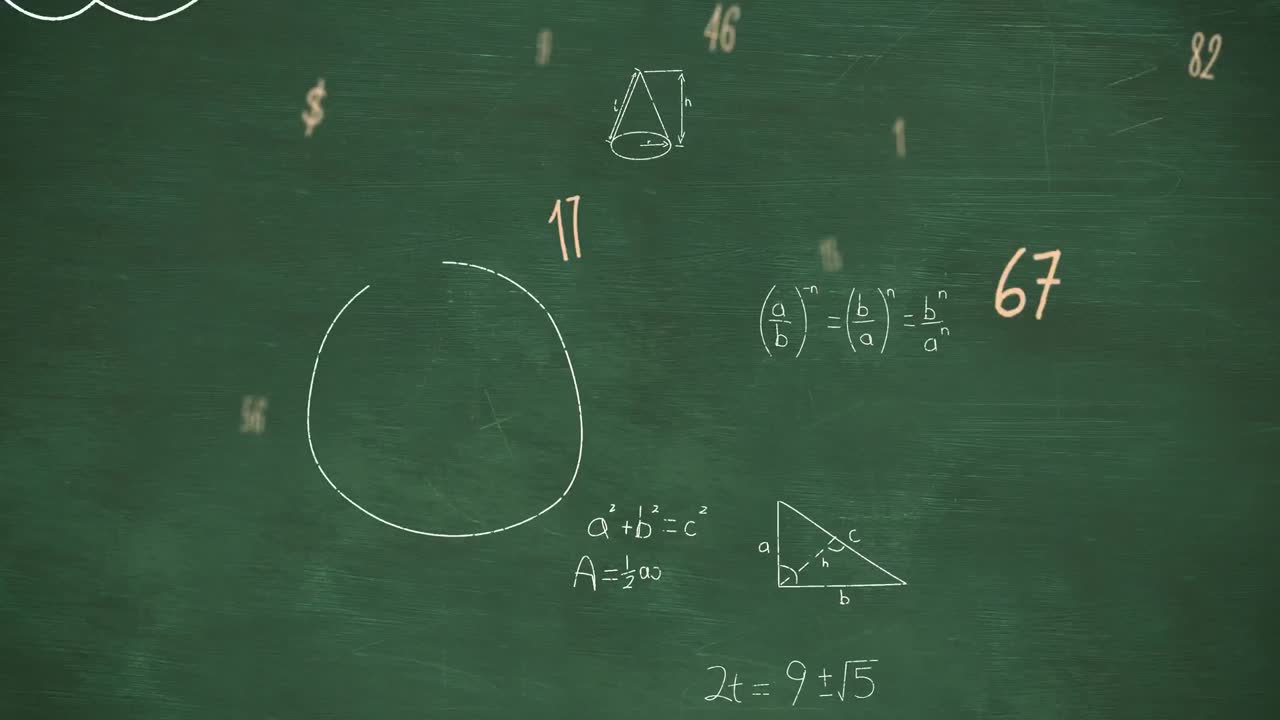 46
82
$
1
l
h
r
17
67
(a/b)⁻ⁿ = (b/a)ⁿ = bⁿ/aⁿ
56
a² + b² = c²
a
c
h
b
A = ½ a
2t = 9 ± √5